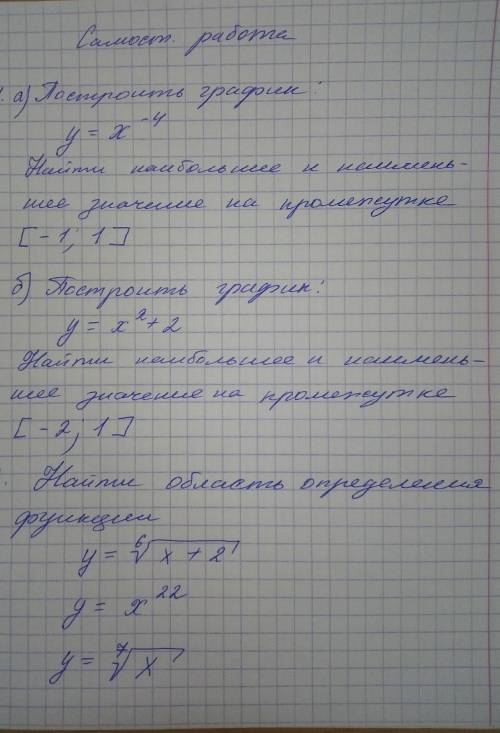 Самост. работа
1. а) Построить график:
y = x⁻⁴
Найти наибольшее и наимень-
шее значение на промежутке
[-1; 1]
б) Построить график:
y = x² + 2
Найти наибольшее и наимень-
шее значение на промежутке
[-2; 1]
Найти область определения
функции
y = ⁶√(x + 2)
y = x²²
y = ⁷√x